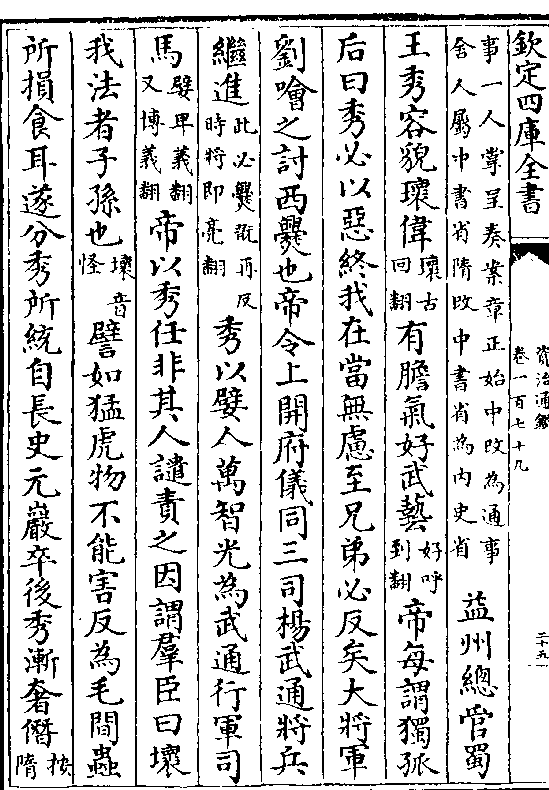 欽定四庫全書
資治通鑑
卷一百七十九
二十五
事一人掌呈奏案章正始中改為通事
舍人屬中書省隋改中書省為内史省
益州總管蜀
王秀容貌瓌偉
瓌古
回翻
有膽氣好武藝
好呼
到翻
帝每謂獨孤
后曰秀必以惡終我在當無慮至兄弟必反矣大將軍
劉噲之討西爨也帝令上開府儀同三司楊武通將兵
繼進
此必爨翫再反
時將即亮翻
秀以嬖人萬智光為武通行軍司
馬
嬖卑義翻
又博義翻
帝以秀任非其人譴責之因謂羣臣曰壞
我法者子孫也
壞音
怪
譬如猛虎物不能害反為毛間蟲
所損食耳遂分秀所統自長史元巖卒後秀漸奢僭
按
隋